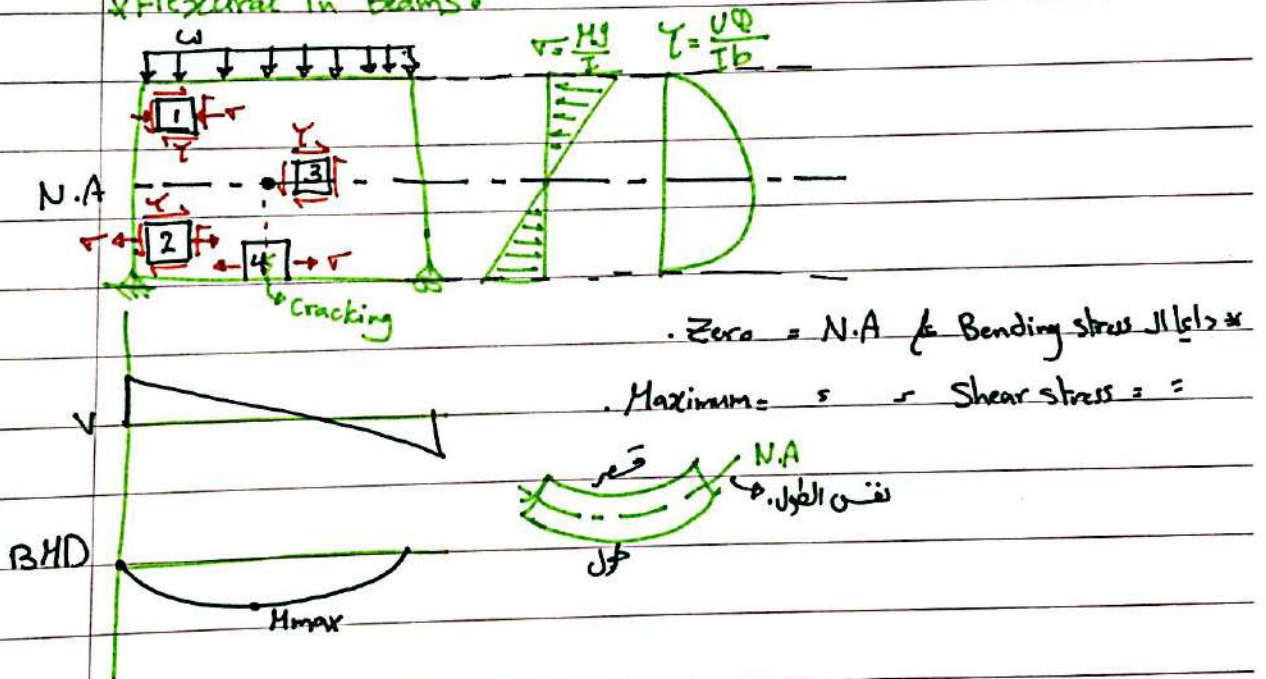 * Flexural in Beams.
ω
σ = My/I
τ = VQ/Ib
1
σ
τ
τ
3
N.A
τ
σ
2
4
σ
Cracking
* دايما ال Bending stress على N.A = Zero.
= = Shear stress = = Maximum.
V
قصر
N.A
نفس الطول.
طول
BMD
Mmax